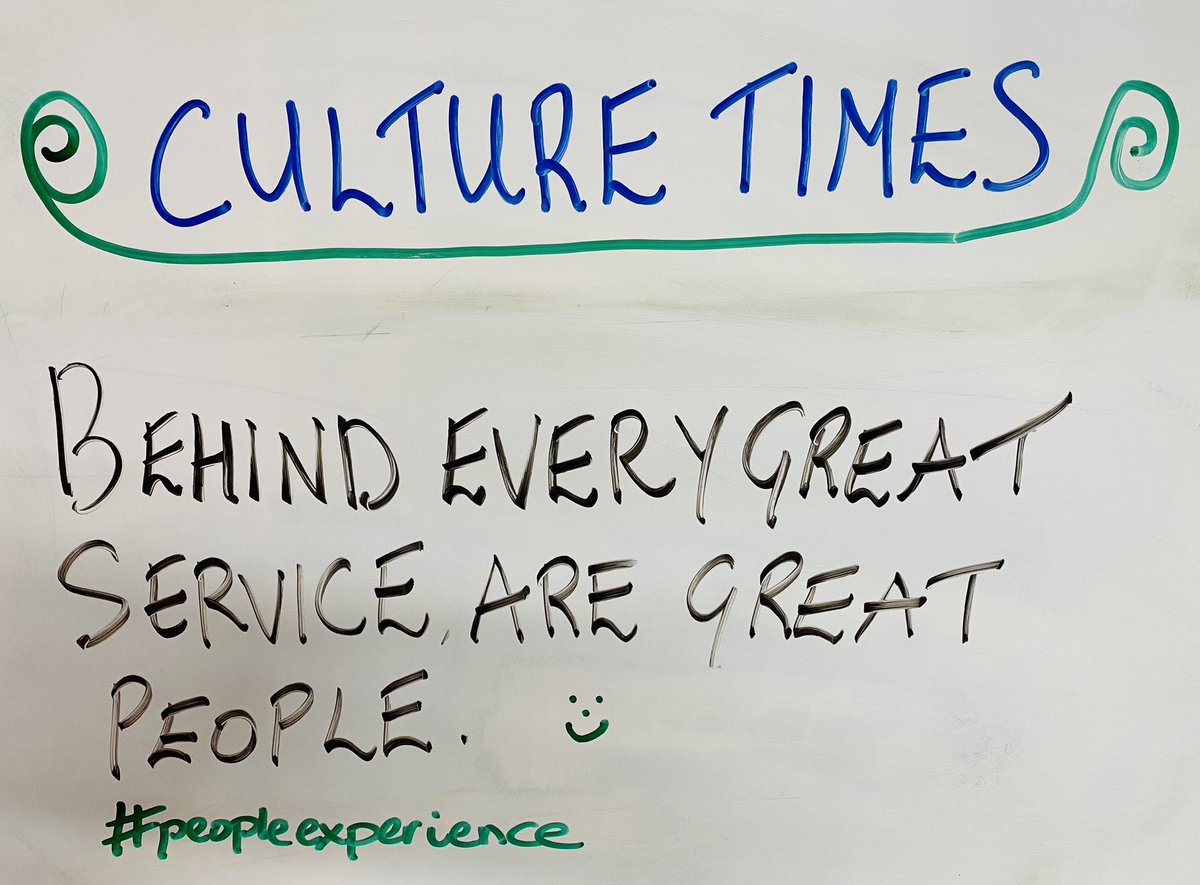 CULTURE TIMES
BEHIND EVERY GREAT
SERVICE, ARE GREAT
PEOPLE.
#peopleexperience